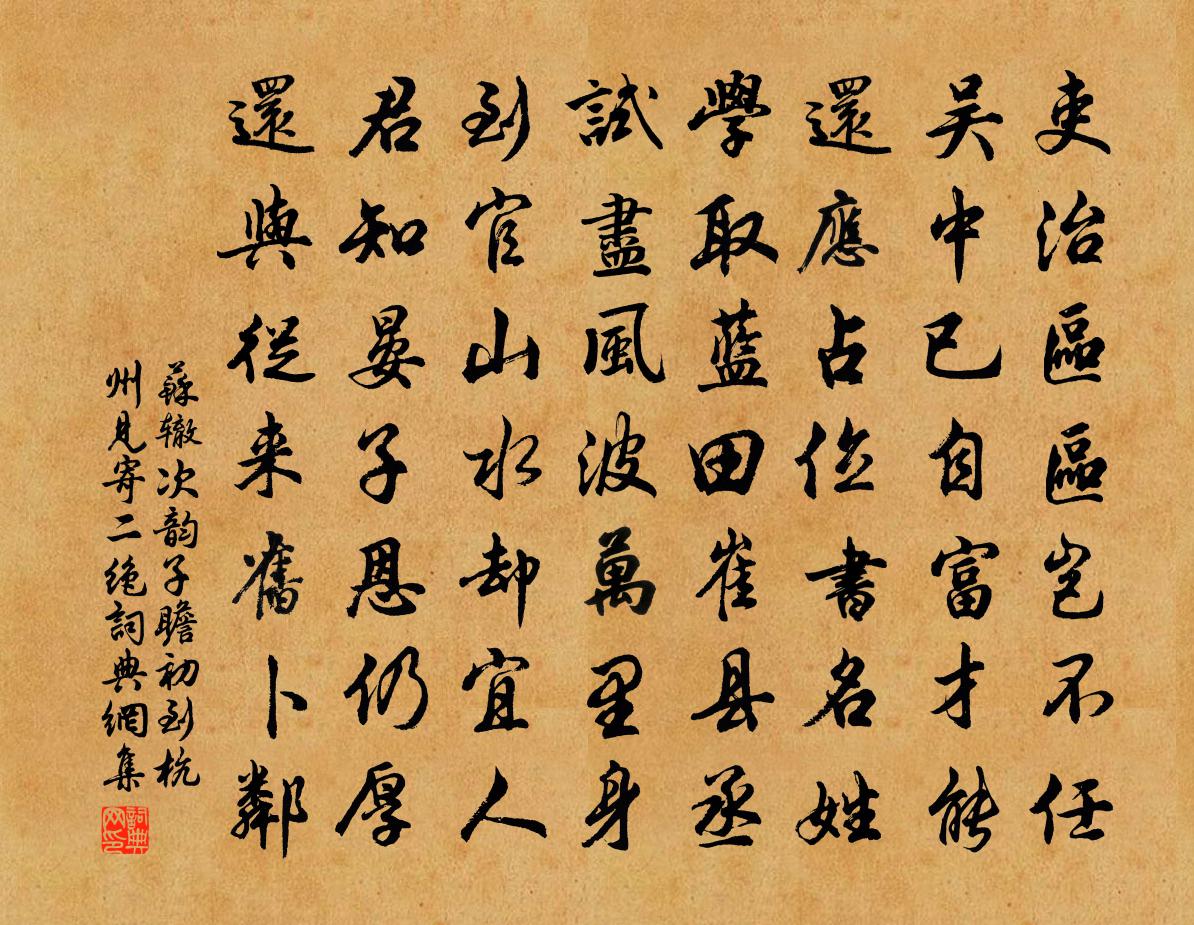 吏治區區岂不任
吴中已自富才能
還應占位書名姓
學取藍田崔县丞
試盡風波萬里身
到官山水却宜人
君知晏子恩仍厚
還與從来舊卜鄰
蘇辙次韵子瞻初到杭
州見寄二绝詞典網集
詞典网印